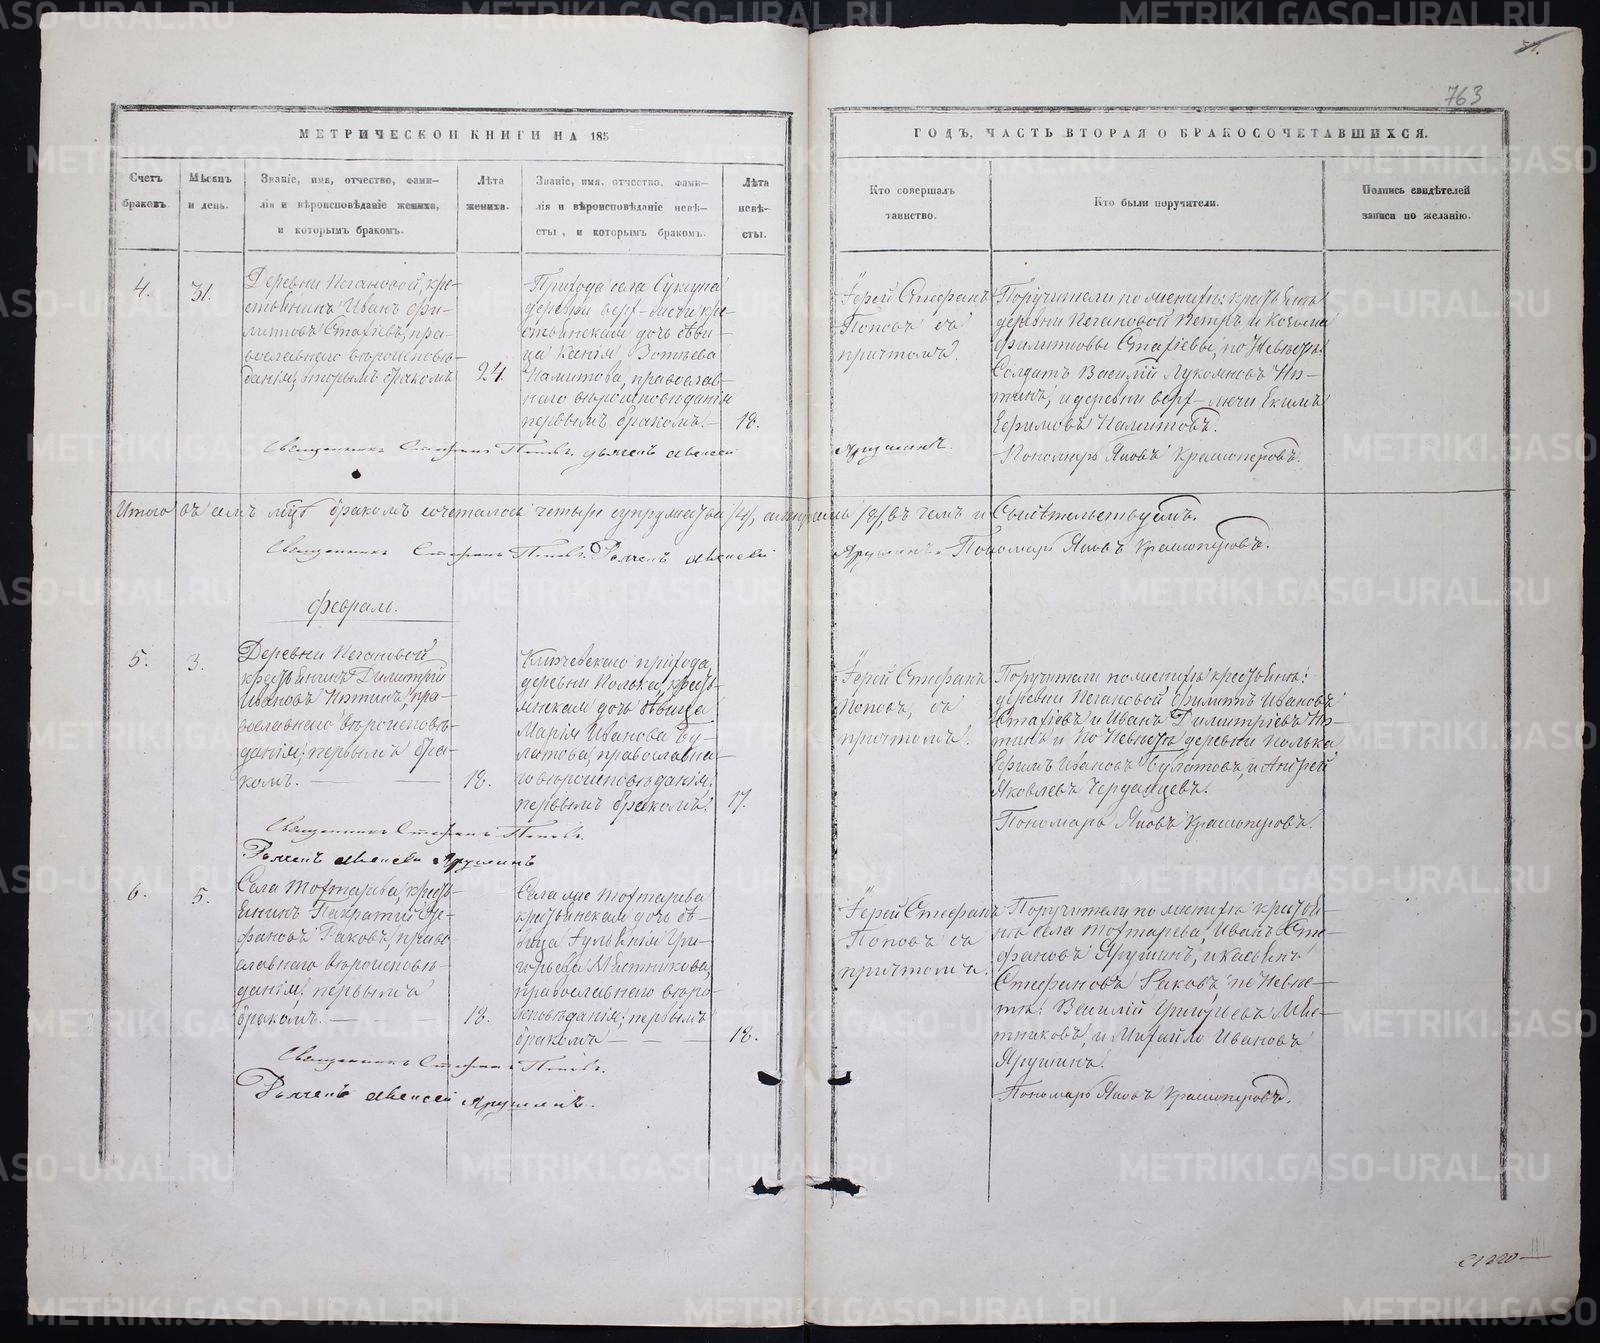 763
МЕТРИЧЕСКОЙ КНИГИ НА 185
ГОДЪ, ЧАСТЬ ВТОРАЯ О БРАКОСОЧЕТАВШИХСЯ.
Счетъ браковъ.
Мѣсяцъ и день.
Званіе, имя, отчество, фами-
лія и вѣроисповѣданіе жениха,
и которымъ бракомъ.
Лѣта
жениха.
Званіе, имя, отчество, фами-
лія и вѣроисповѣданіе невѣ-
сты, и которымъ бракомъ.
Лѣта
невѣ-
сты.
Кто совершалъ
таинство.
Кто были поручители.
Подпись свидѣтелей
записи по желанію.
4.
31.
Деревни Пегановой, кре-
стьянинъ Иванъ Фи-
липповъ Стахіевъ, пра-
вославнаго вѣроисповѣ-
данія, вторымъ бракомъ
24.
Прихода села Суксуна
деревни верх-
стьянская дочь дѣви-
ца Ксенія Зотѣева
православ-
наго вѣроисповѣданія
первымъ бракомъ.
18.
Іерей Стефанъ
Поповъ съ
причтомъ.
Поручители по женихѣ: крестьяне
деревни Пегановой Петръ и Козьма
Филипповы Стахіевы, по Невѣстѣ:
Солдатъ Василій
и деревни верх-
Ефимовъ
Священникъ Стефанъ Поповъ. дьяконъ Алексей
Ярушинъ.
Пономарь Яковъ Красноперовъ.
Итого въ семъ м-цѣ бракомъ сочеталось четыре супружества /4/, а лицами /8/, въ чемъ и Свидѣтельствуемъ.
Священникъ Стефанъ Поповъ. Дьяконъ Алексей
Ярушинъ. Пономарь Яковъ Красноперовъ.
Февраль.
5.
3.
Деревни Пегановой
крестьянинъ Димитрій
Ивановъ пра-
вославнаго вѣроисповѣ-
данія; первымъ бра-
комъ.
18.
Ключевскаго прихода,
деревни Полька, кресть-
янская дочь дѣвица
Марія Иванова Бу-
латова, православна-
го вѣроисповѣданія,
первымъ бракомъ.
17.
Іерей Стефанъ
Поповъ, съ
причтомъ.
Поручители по женихѣ крестьяне:
деревни Пегановой Филиппъ Ивановъ
Стахіевъ и Иванъ Димитріевъ
и по Невѣстѣ деревни Полька
Ефимъ Ивановъ Булатовъ, и Андрей
Яковлевъ Черданцевъ.
Пономарь Яковъ Красноперовъ.
Священникъ Стефанъ Поповъ.
Дьяконъ Алексей Ярушинъ
6.
5.
Села Тохтарева, кресть-
янинъ Панкратій Сте-
фановъ Раковъ, право-
славнаго вѣроисповѣ-
данія: первымъ
бракомъ.
18.
Села тохтарева
крестьянская дочь дѣ-
вица Іульянія Гри-
горьева Мѣстникова,
православнаго вѣро-
исповѣданія; первымъ
бракомъ
18.
Іерей Стефанъ
Поповъ съ
причтомъ.
Поручители по женихѣ крестья-
не села тохтарева, Иванъ Сте-
фановъ Ярушинъ, и касьянъ
Стефановъ Раковъ; по Невѣс-
тѣ: Василій Григорьевъ Мѣс-
тниковъ, и Михайло Ивановъ
Ярушинъ.
Пономарь Яковъ Красноперовъ.
Священникъ Стефанъ Поповъ.
Дьяконъ Алексей Ярушинъ.
METRIKI.GASO-URAL.RU